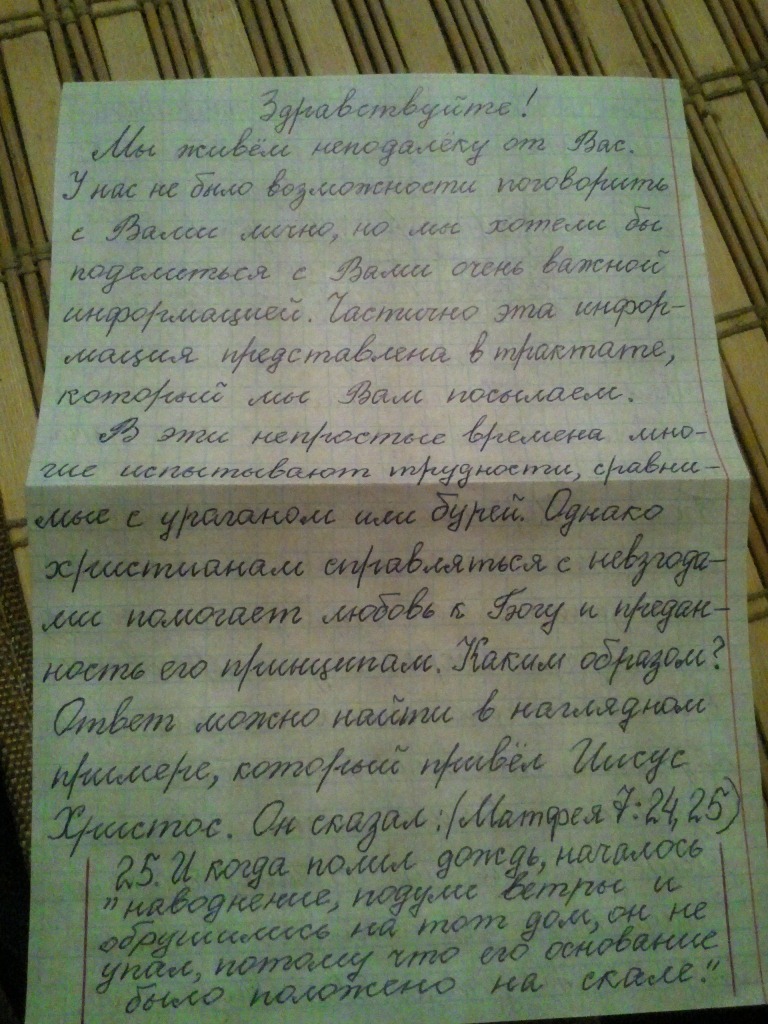 Здравствуйте!
Мы живём неподалёку от Вас.
У нас не было возможности поговорить
с Вами лично, но мы хотели бы
поделиться с Вами очень важной
информацией. Частично эта инфор-
мация представлена в трактате,
который мы Вам посылаем.
В эти непростые времена мно-
гие испытывают трудности, сравни-
мые с ураганом или бурей. Однако
христианам справляться с невзгода-
ми помогает любовь к Богу и предан-
ность его принципам. Каким образом?
Ответ можно найти в наглядном
примере, который привёл Иисус
Христос. Он сказал: (Матфея 7:24,25)
25. И когда полил дождь, началось
"наводнение, подули ветры и
обрушились на тот дом, он не
упал, потому что его основание
было положено на скале."